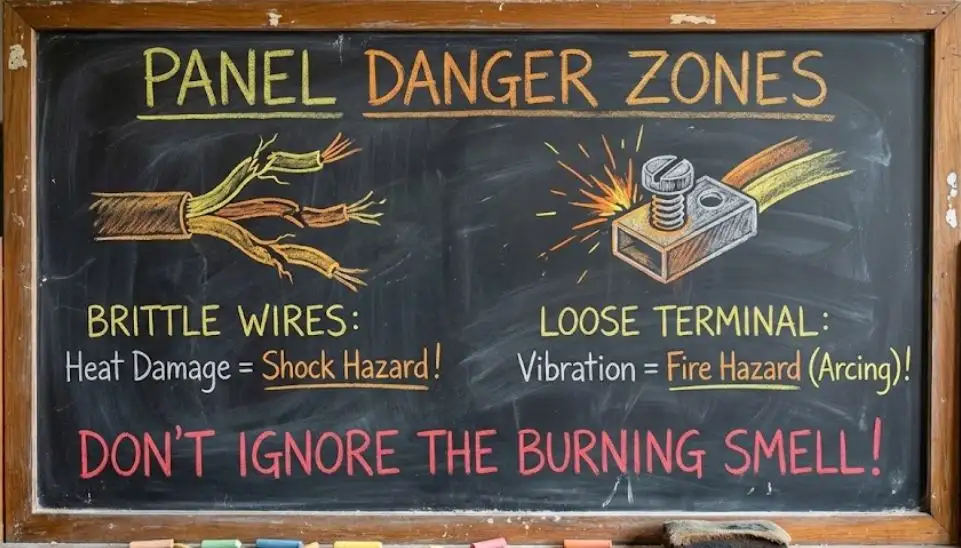 PANEL DANGER ZONES
BRITTLE WIRES:
Heat Damage = Shock Hazard!
LOOSE TERMINAL:
Vibration = Fire Hazard (Arcing)!
DON'T IGNORE THE BURNING SMELL!